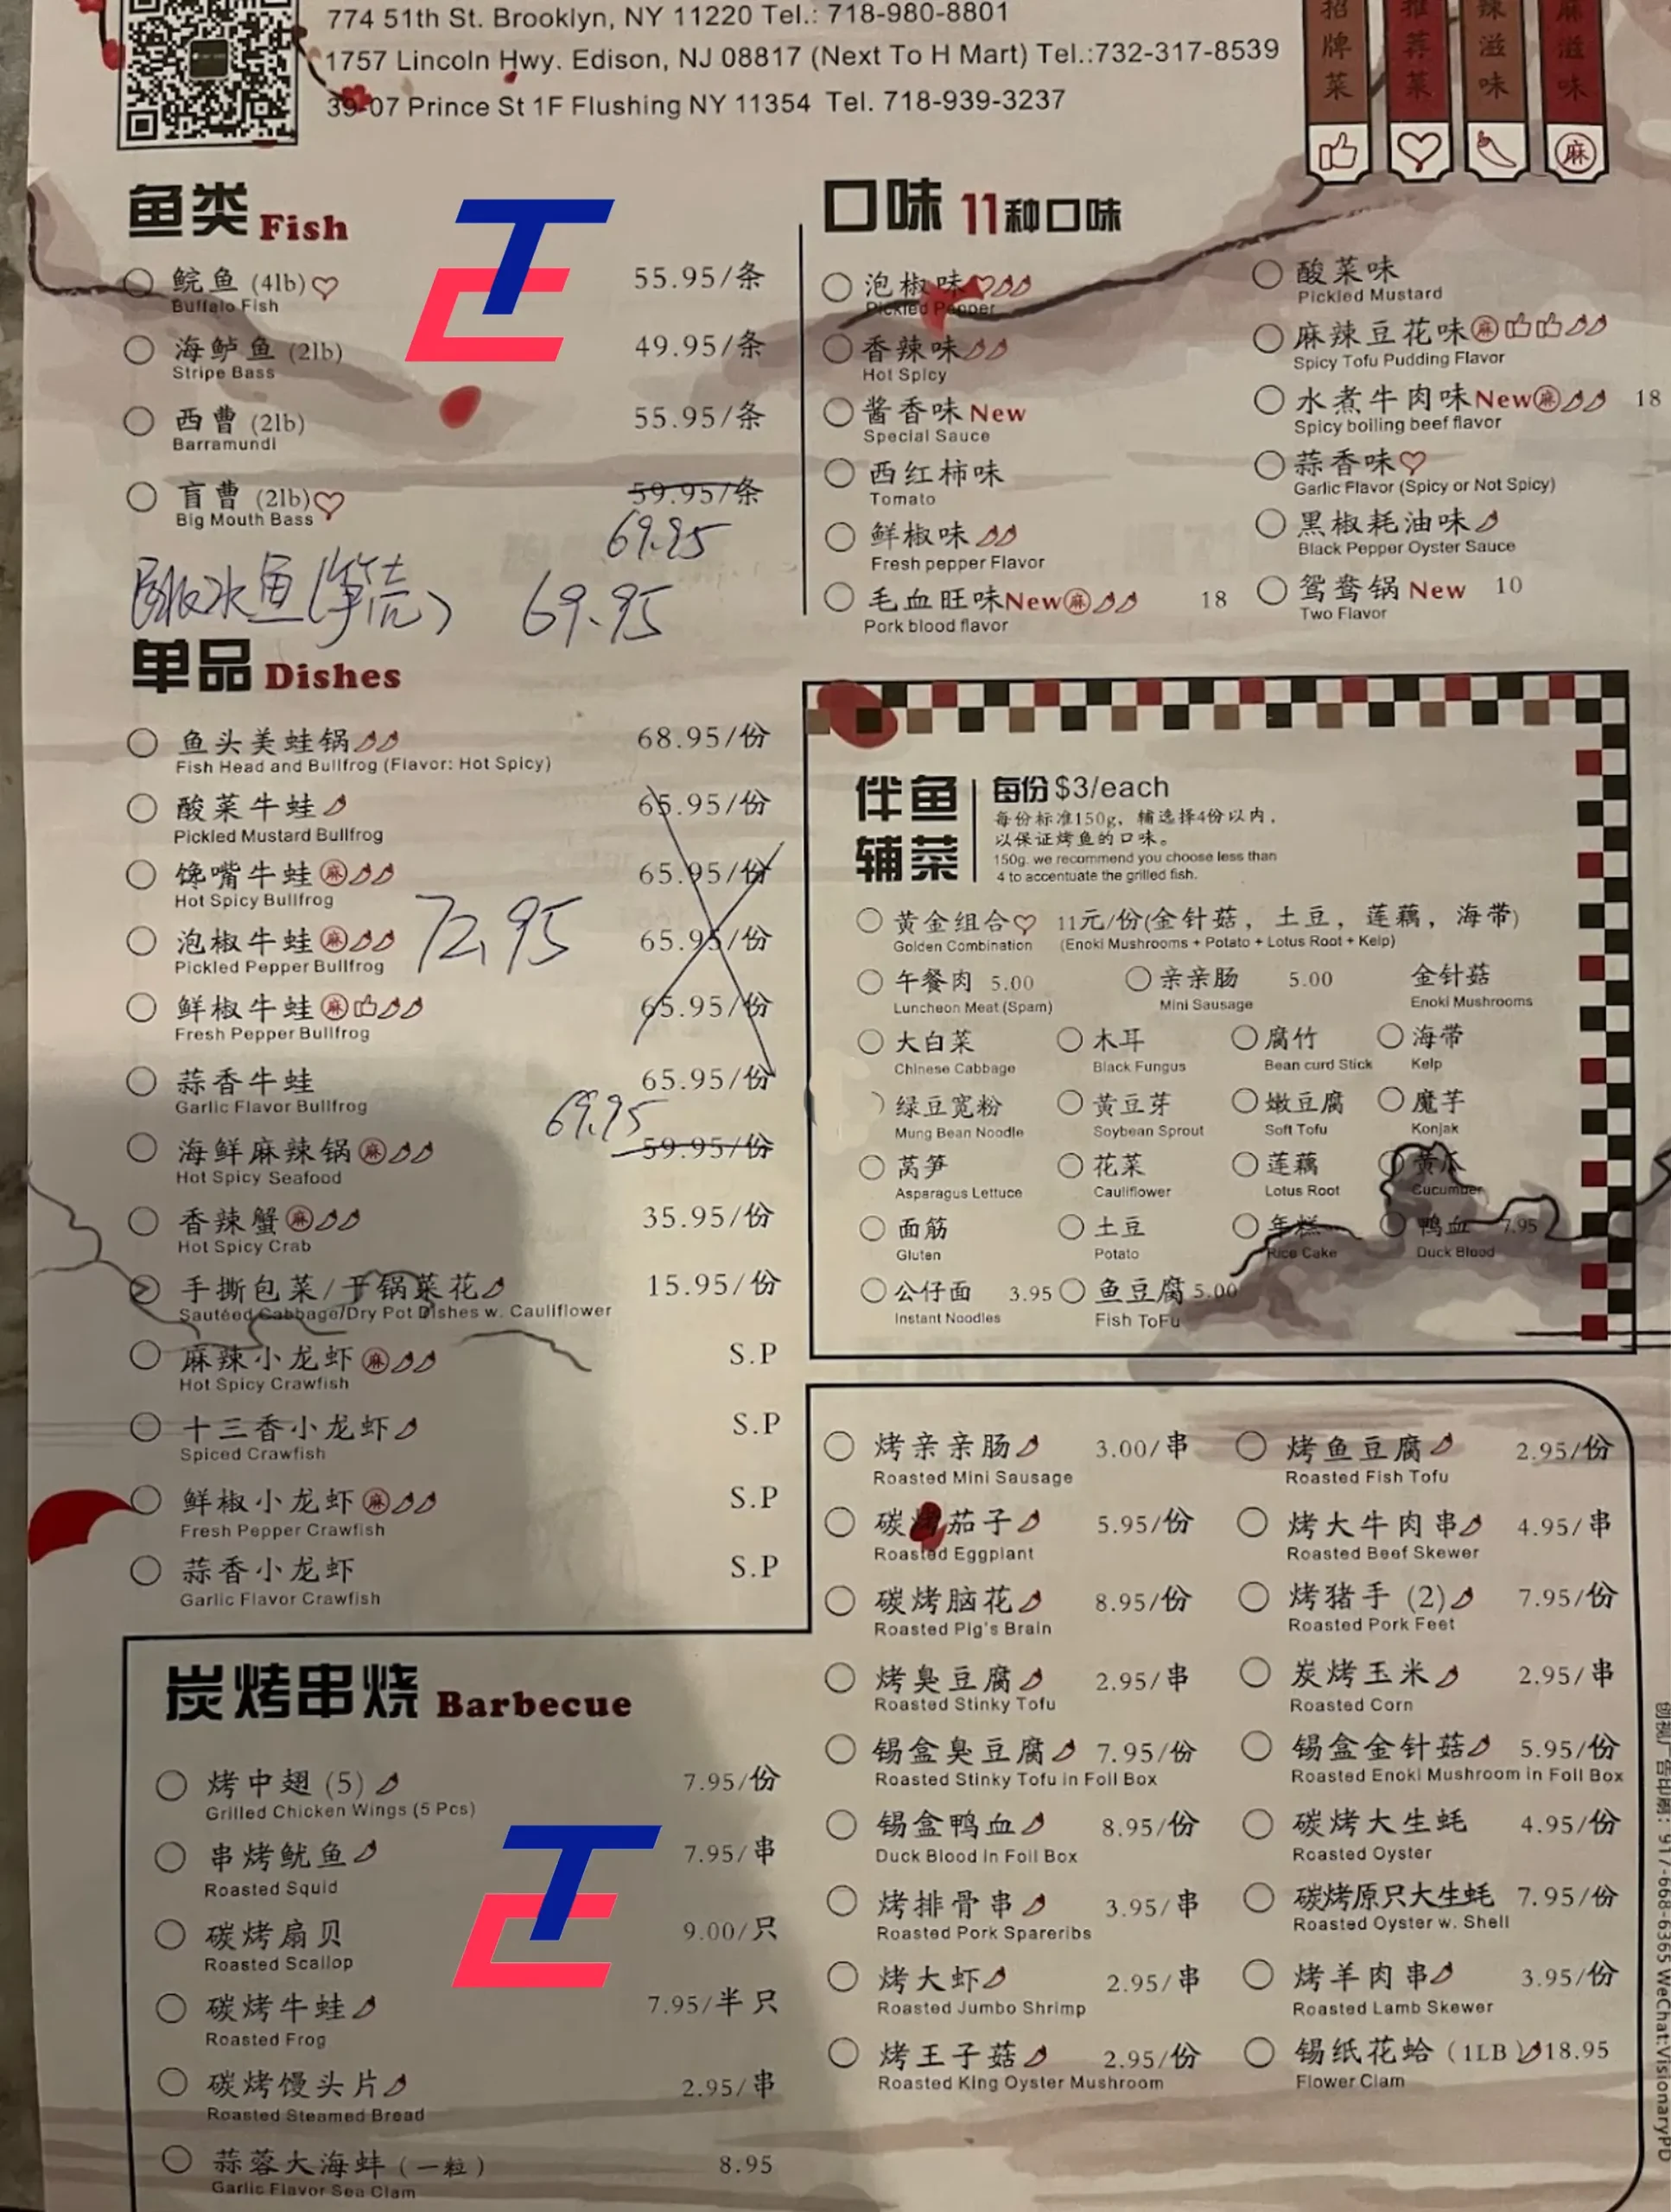 774 51th St. Brooklyn, NY 11220 Tel.: 718-980-8801
1757 Lincoln Hwy. Edison, NJ 08817 (Next To H Mart) Tel.:732-317-8539
39-07 Prince St 1F Flushing NY 11354 Tel. 718-939-3237
招牌菜
推荐菜
辣滋味
麻滋味
麻
鱼类 Fish
鲩鱼 (4lb) 55.95/条
Buffalo Fish
海鲈鱼 (2lb) 49.95/条
Stripe Bass
西曹 (2lb) 55.95/条
Barramundi
盲曹 (2lb) 59.95/条
Big Mouth Bass
69.95
69.95
口味 11种口味
泡椒味
Pickled Pepper
香辣味
Hot Spicy
酱香味 New
Special Sauce
西红柿味
Tomato
鲜椒味
Fresh pepper Flavor
毛血旺味New麻 18
Pork blood flavor
酸菜味
Pickled Mustard
麻辣豆花味麻
Spicy Tofu Pudding Flavor
水煮牛肉味New麻 18
Spicy boiling beef flavor
蒜香味
Garlic Flavor (Spicy or Not Spicy)
黑椒耗油味
Black Pepper Oyster Sauce
鸳鸯锅 New 10
Two Flavor
单品 Dishes
鱼头美蛙锅 68.95/份
Fish Head and Bullfrog (Flavor: Hot Spicy)
酸菜牛蛙 65.95/份
Pickled Mustard Bullfrog
馋嘴牛蛙麻 65.95/份
Hot Spicy Bullfrog
泡椒牛蛙麻 65.95/份
Pickled Pepper Bullfrog
72.95
鲜椒牛蛙麻 65.95/份
Fresh Pepper Bullfrog
蒜香牛蛙 65.95/份
Garlic Flavor Bullfrog
69.95
海鲜麻辣锅麻 59.95/份
Hot Spicy Seafood
香辣蟹麻 35.95/份
Hot Spicy Crab
手撕包菜/干锅菜花 15.95/份
Sautéed Cabbage/Dry Pot Dishes w. Cauliflower
麻辣小龙虾麻 S.P
Hot Spicy Crawfish
十三香小龙虾 S.P
Spiced Crawfish
鲜椒小龙虾麻 S.P
Fresh Pepper Crawfish
蒜香小龙虾 S.P
Garlic Flavor Crawfish
伴鱼辅菜
每份$3/each
每份标准150g, 辅选择4份以内,
以保证烤鱼的口味。
150g. we recommend you choose less than
4 to accentuate the grilled fish.
黄金组合 11元/份(金针菇, 土豆, 莲藕, 海带)
Golden Combination (Enoki Mushrooms + Potato + Lotus Root + Kelp)
午餐肉 5.00 亲亲肠 5.00 金针菇
Luncheon Meat (Spam) Mini Sausage Enoki Mushrooms
大白菜 木耳 腐竹 海带
Chinese Cabbage Black Fungus Bean curd Stick Kelp
绿豆宽粉 黄豆芽 嫩豆腐 魔芋
Mung Bean Noodle Soybean Sprout Soft Tofu Konjak
莴笋 花菜 莲藕 黄瓜
Asparagus Lettuce Cauliflower Lotus Root Cucumber
面筋 土豆 年糕 鸭血 7.95
Gluten Potato Rice Cake Duck Blood
公仔面 3.95 鱼豆腐 5.00
Instant Noodles Fish ToFu
炭烤串烧 Barbecue
烤中翅 (5) 7.95/份
Grilled Chicken Wings (5 Pcs)
串烤鱿鱼 7.95/串
Roasted Squid
碳烤扇贝 9.00/只
Roasted Scallop
碳烤牛蛙 7.95/半只
Roasted Frog
碳烤馒头片 2.95/串
Roasted Steamed Bread
蒜蓉大海蚌 (一粒) 8.95
Garlic Flavor Sea Clam
烤亲亲肠 3.00/串
Roasted Mini Sausage
碳烤茄子 5.95/份
Roasted Eggplant
碳烤脑花 8.95/份
Roasted Pig's Brain
烤臭豆腐 2.95/串
Roasted Stinky Tofu
锡盒臭豆腐 7.95/份
Roasted Stinky Tofu in Foil Box
锡盒鸭血 8.95/份
Duck Blood in Foil Box
烤排骨串 3.95/串
Roasted Pork Spareribs
烤大虾 2.95/串
Roasted Jumbo Shrimp
烤王子菇 2.95/份
Roasted King Oyster Mushroom
烤鱼豆腐 2.95/份
Roasted Fish Tofu
烤大牛肉串 4.95/串
Roasted Beef Skewer
烤猪手 (2) 7.95/份
Roasted Pork Feet
炭烤玉米 2.95/串
Roasted Corn
锡盒金针菇 5.95/份
Roasted Enoki Mushroom in Foil Box
碳烤大生蚝 4.95/份
Roasted Oyster
碳烤原只大生蚝 7.95/份
Roasted Oyster w. Shell
烤羊肉串 3.95/份
Roasted Lamb Skewer
锡纸花蛤 (1LB) 18.95
Flower Clam
917-668-6365 WeChat:VisionaryPD